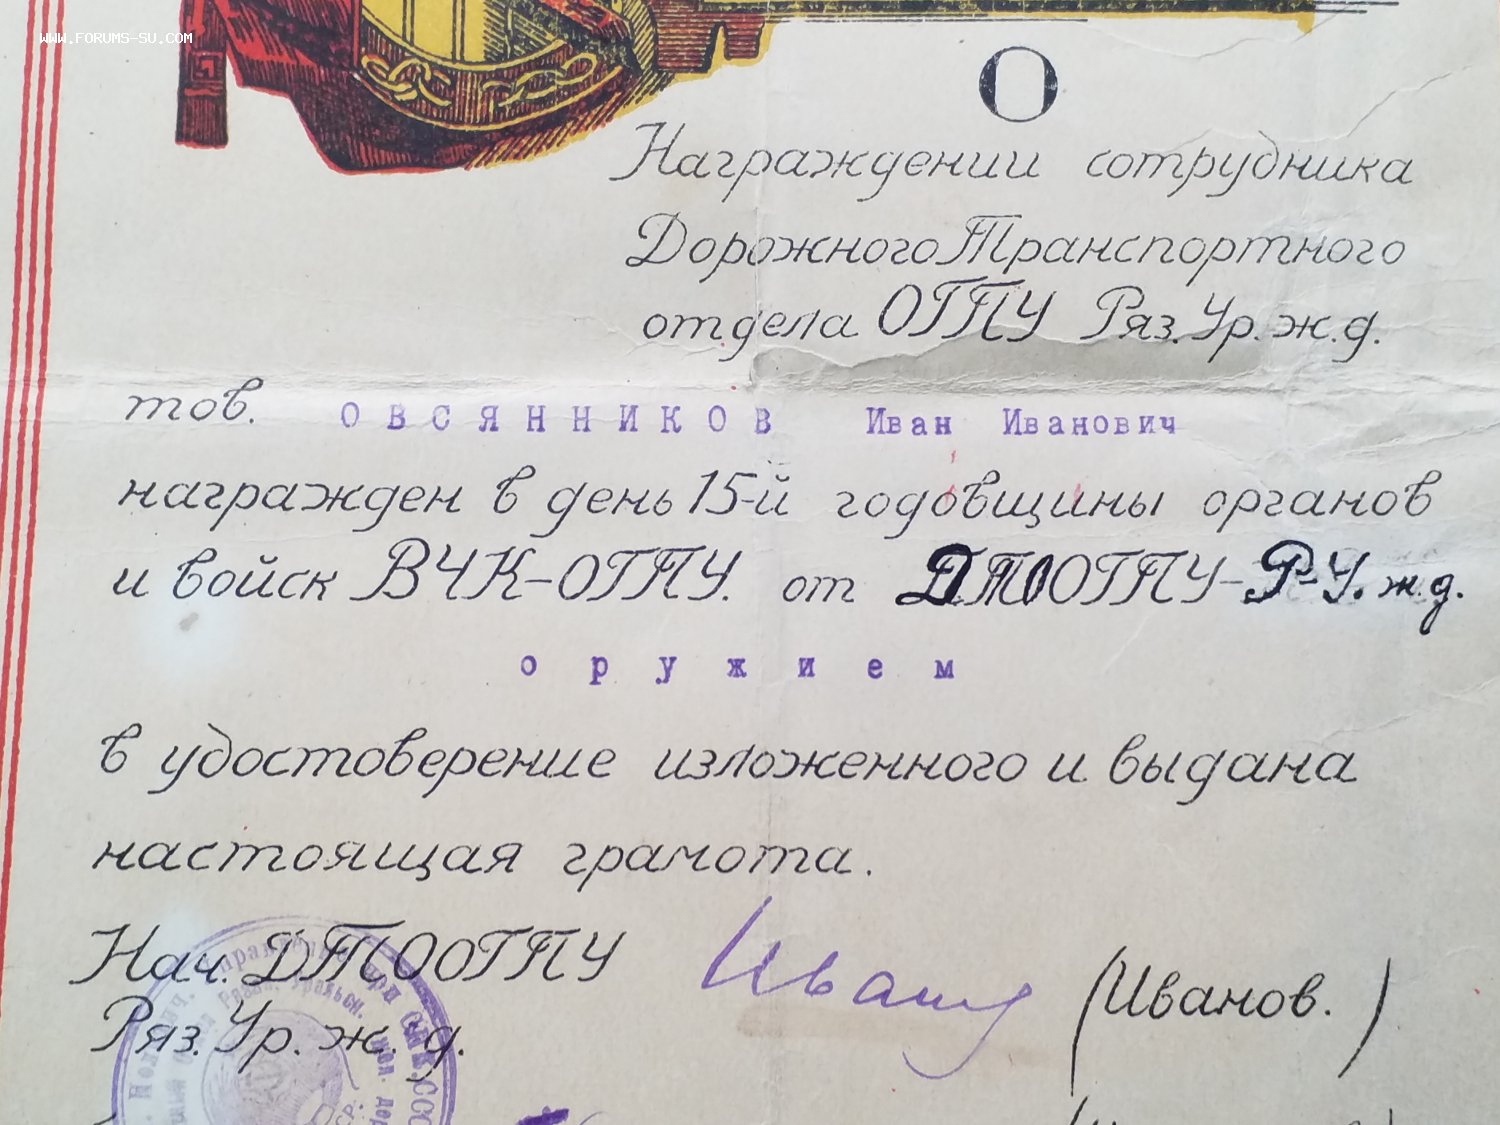 WWW.FORUMS-SU.COM
О
Награждении сотрудника
Дорожного Транспортного
отдела ОГПУ Ряз. Ур. ж. д.
тов. ОВСЯННИКОВ Иван Иванович
награжден в день 15-й годовщины органов
и войск ВЧК-ОГПУ. от ДТООГПУ-Р-У. ж. д.
оружием
в удостоверение изложенного и выдана
настоящая грамота.
Нач. ДТООГПУ Иванов (Иванов.)
Ряз. Ур. ж. д.
Полит. Управление при СНК СССР
Ряз. Уральск. жел. дор